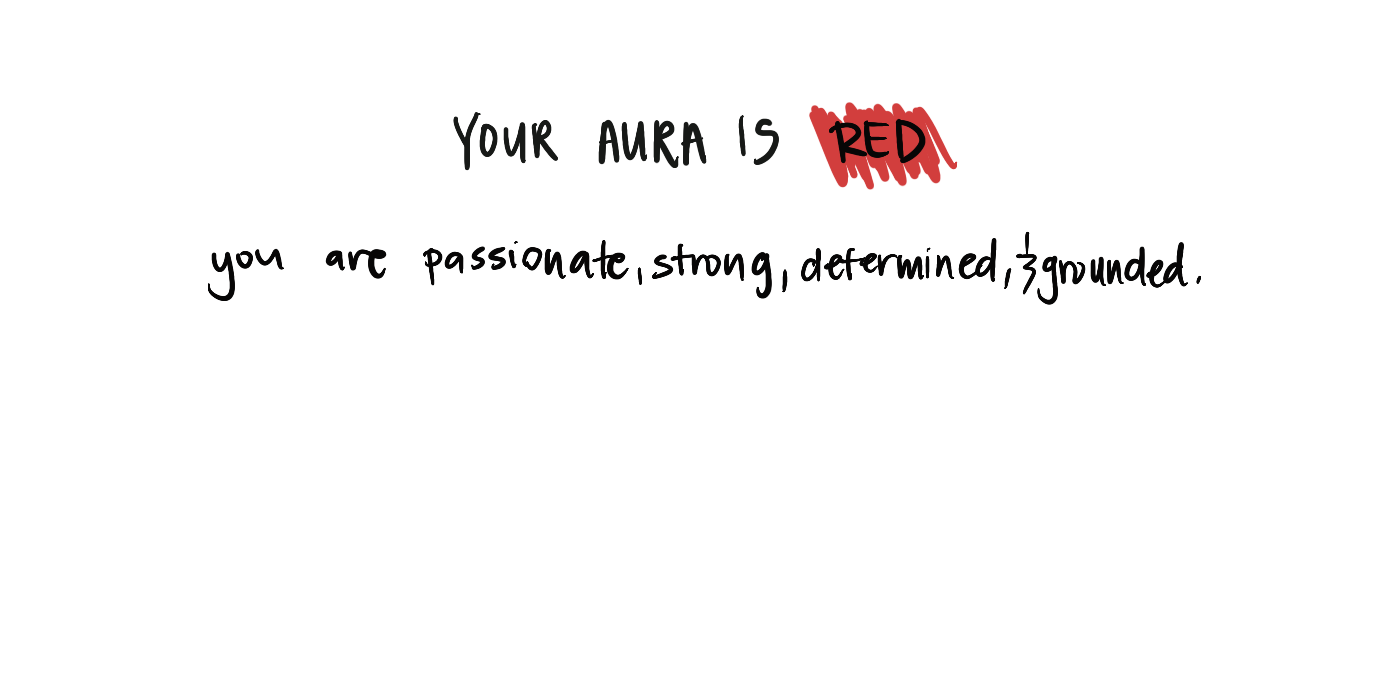 YOUR AURA IS RED
you are passionate, strong, determined, & grounded.